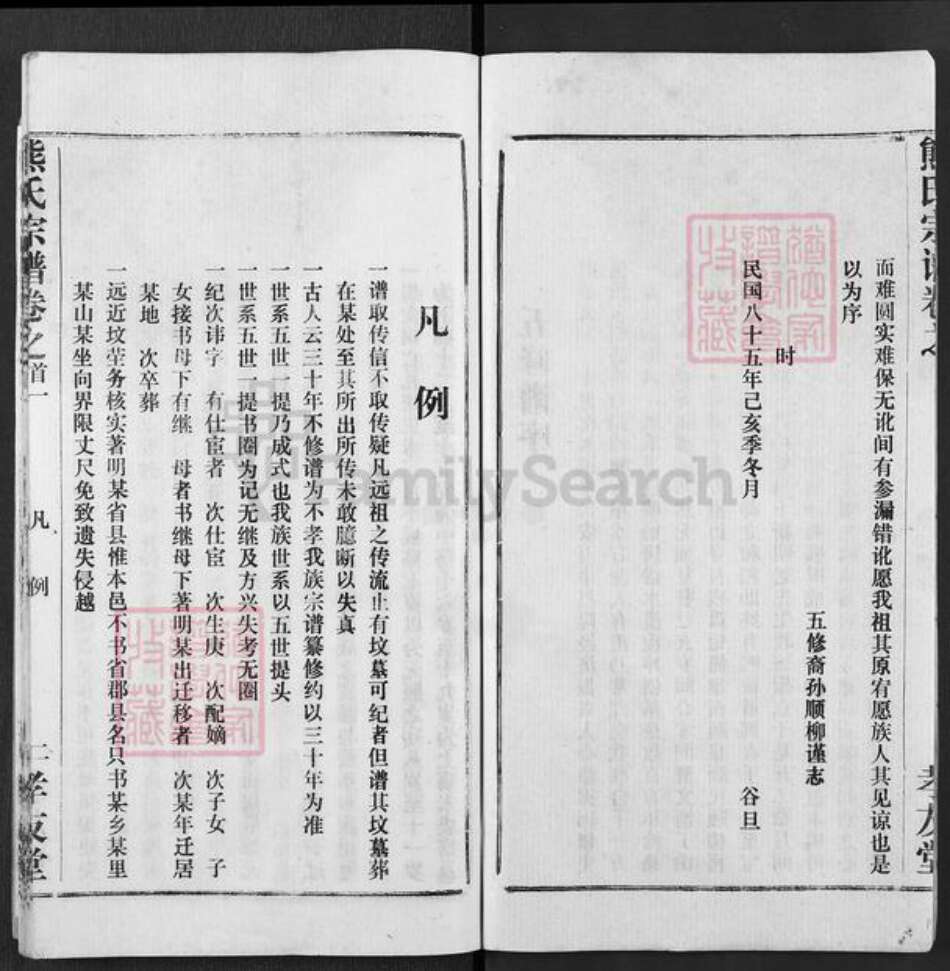 熊氏宗谱卷之
面难圆实难保无讹间有参漏错讹愿我祖其原宥愿族人其见谅也是
以为序
五修裔孙顺柳谨志
时
民国八十五年己亥季冬月 谷旦
孝友堂
凡例
一谱取传信不取传疑凡远祖之传流止有坟墓可纪者但谱其坟墓葬
在某处至其所出所传未敢臆断以失真
一古人云三十年不修谱为不孝我族宗谱纂修约以三十年为准
一世系五世一提乃成式也我族世系以五世提头
一世系五世一提书圈为记无继及方兴失考无圈
一纪次讳字 有仕宦者 次仕宦 次生庚 次配嫡 次子女 子
女接书母下有继 母者书继母下著明某出迁移者 次某年迁居
某地 次卒葬
一远近坟茔务核实著明某省县惟本邑不书省郡县名只书某乡某里
某山某坐向界限丈尺免致遗失侵越
熊氏宗谱卷之首一 凡例 一孝友堂
FamilySearch